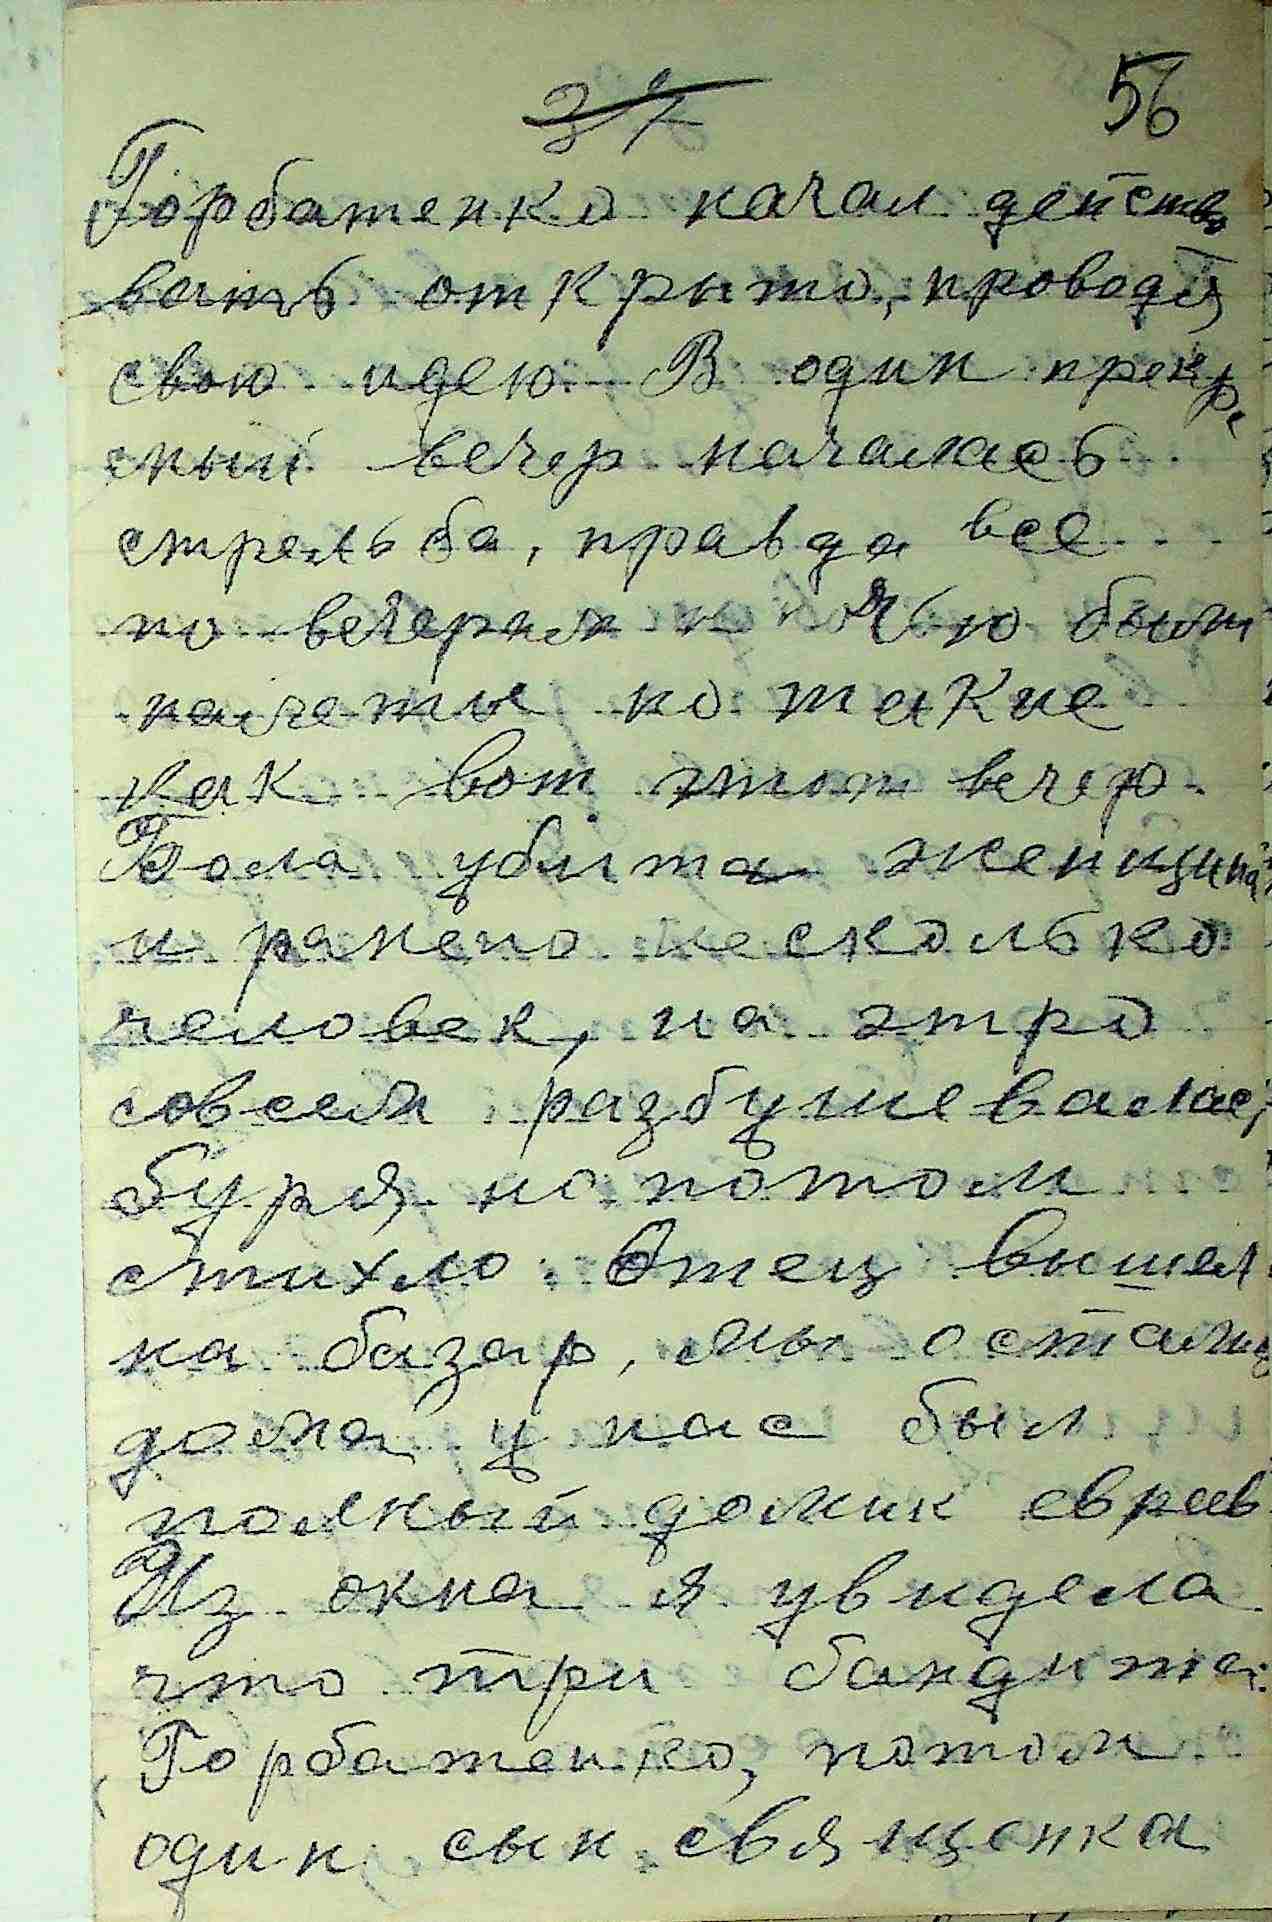 37 56
Горбатенко начал действо
вать открыто, проводя
свою идею. В один прекра
сный вечер началась
стрельба, правда все
по вечерам ночью были
налеты но такие
как вот этот вечер.
Была убита женщина
и ранено несколько
человек, на этро
совсем разбушевалась
буря, но потом
стихло. Отец вышел
на базар, мы остались
дома, у нас был
полный домик евреев
Из окна я увидела
что три бандита:
Горбатенко, потом
один сын священка